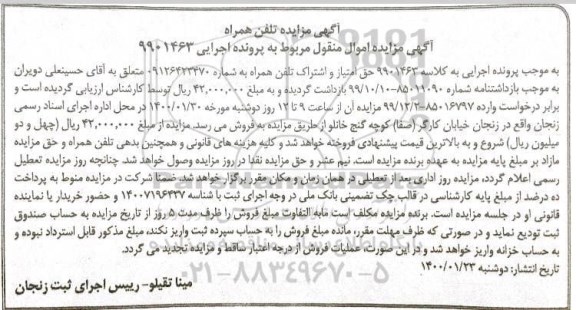 آگهی مزایده تلفن همراه
آگهی مزایده اموال منقول مربوط به پرونده اجرایی ۹۹۰۱۴۶۳
به موجب پرونده اجرایی به کلاسه ۹۹۰۱۴۶۳ حق امتیاز و اشتراک تلفن همراه به شماره ۰۹۱۲۶۴۲۳۴۷۰ متعلق به آقای حسینعلی دویران
به موجب بازداشتنامه شماره ۸۵۰۱۱۰۹۰-۹۹/۱۰/۱۰ بازداشت گردیده و به مبلغ ۴۲,۰۰۰,۰۰۰ ریال توسط کارشناس ارزیابی گردیده است و
برابر درخواست وارده ۸۵۰۱۶۷۹۷-۹۹/۱۲/۲ مزایده آن از ساعت ۹ تا ۱۲ روز دوشنبه مورخه ۱۴۰۰/۰۱/۳۰ در محل اداره اجرای اسناد رسمی
زنجان واقع در زنجان خیابان کارگر (صفا) کوچه گنج خانلو از طریق مزایده به فروش می رسد. مزایده از مبلغ ۴۲,۰۰۰,۰۰۰ ریال (چهل و دو
میلیون ریال) شروع و به بالاترین قیمت پیشنهادی فروخته خواهد شد و کلیه هزینه های قانونی و همچنین بدهی تلفن همراه و حق مزایده
مازاد بر مبلغ پایه مزایده به عهده برنده مزایده است. نیم عشر و حق مزایده نقدا در روز مزایده وصول خواهد شد. چنانچه روز مزایده تعطیل
رسمی اعلام گردد، مزایده روز اداری بعد از تعطیلی در همان زمان و مکان مقرر برگزار خواهد شد. ضمنا شرکت در مزایده منوط به پرداخت
ده درصد از مبلغ پایه کارشناسی در قالب چک تضمینی بانک ملی در وجه اجرای ثبت با شناسه ۱۴۰۰۷۱۹۶۴۳۷ و حضور خریدار یا نماینده
قانونی او در جلسه مزایده است. برنده مزایده مکلف است مابه التفاوت مبلغ فروش را ظرف مدت ۵ روز از تاریخ مزایده به حساب صندوق
ثبت تودیع نماید و در صورتی که ظرف مهلت مقرر، مانده مبلغ فروش را به حساب سپرده ثبت واریز نکند، مبلغ مذکور قابل استرداد نبوده و
به حساب خزانه واریز خواهد شد و در این صورت، عملیات فروش از درجه اعتبار ساقط و مزایده تجدید می گردد.
تاریخ انتشار: دوشنبه ۱۴۰۰/۰۱/۲۳
۰۲۱-۸۸۳۴۹۶۷۰-۵
مینا تقیلو- رییس اجرای ثبت زنجان